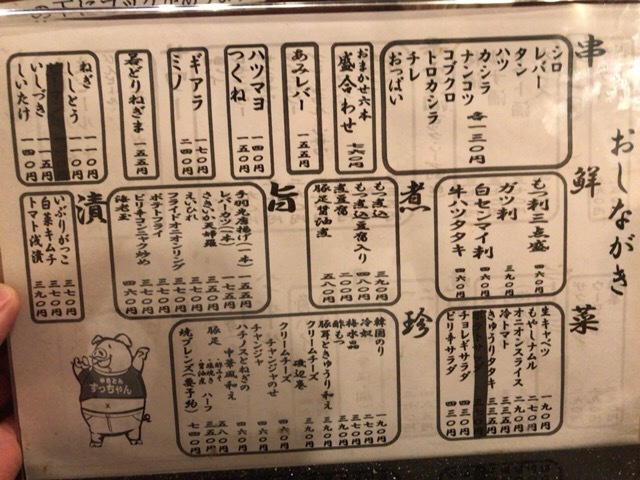 おしながき
串
シロ
レバー
タン
ハツ
カシラ
ナンコツ
コブクロ
トロカシラ
チレ
おっぱい
各一三〇円
おまかせ六本
盛合わせ
七六〇円
あみレバー
一五五円
ハツマヨ
一四〇円
つくね
一五〇円
ギアラ
一七〇円
ミノ
二四〇円
若どりねぎま
一五五円
ねぎ
一一〇円
ししとう
一一〇円
いしづき
一一五円
しいたけ
一四〇円
鮮
もつ刺三点盛
四六〇円
ガツ刺
三九〇円
白センマイ刺
四六〇円
牛ハツタタキ
四六〇円
煮
もつ煮込
三九〇円
もつ煮込豆腐入り
四八〇円
煮豆腐
二〇〇円
豚足醤油煮
五八〇円
旨
手羽先唐揚げ(一本)
一五五円
レバーカツ(一本)
一五五円
さきいか天婦羅
えいひれ
フライドオニオンリング
三七〇円
ポテトフライ
三七〇円
ピリ辛コンニャク炒め
海老玉
四六〇円
漬
いぶりがっこ
三七〇円
白菜キムチ
三七〇円
トマト浅漬
三九〇円
菜
生キャベツ
一九〇円
もやしナムル
オニオンスライス
二七〇円
冷トマト
きゅうりタタキ
チョレギサラダ
四三〇円
ピリ辛サラダ
四三〇円
珍
韓国のり
一九〇円
冷奴
梅水晶
酢もつ
豚耳ときゅうり和え
三九〇円
クリームチーズ
磯辺巻
三九〇円
クリームチーズ
チャンジャのせ
四六〇円
チャンジャ
四六〇円
ハチノスとねぎの
中華風和え
四六〇円
豚足
ハーフ
焼ブレンズ(要予約)
七四〇円
やきとん
ずっちゃん